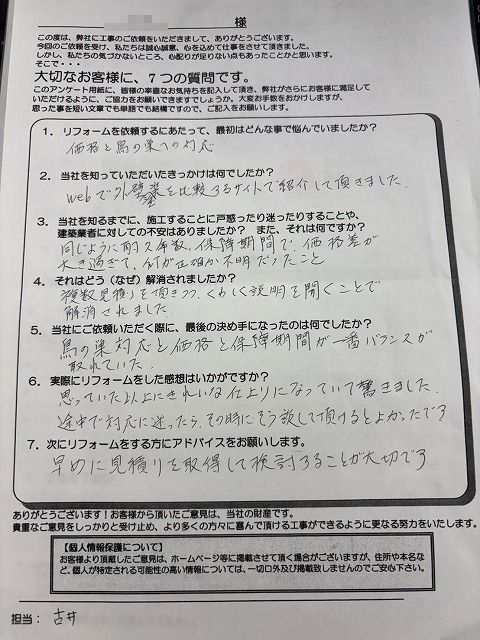 様
この度は、弊社に工事のご依頼をいただきまして、ありがとうございます。
今回のご依頼を受け、私たちは誠心誠意、心を込めて仕事をさせて頂きました。
しかし、私たちの気づかないところ、心配りが足りない点もあったことかと思います。
そこで・・・
大切なお客様に、7つの質問です。
このアンケート用紙に、皆様の率直なお気持ちを記入して頂き、弊社がさらにお客様に満足して
いただけるように、ご協力をお願いできますでしょうか。大変お手数をおかけしますが、
思った事を短い文章でも単語でも結構ですので、ご記入をお願いします。
1. リフォームを依頼するにあたって、最初はどんな事で悩んでいましたか?
価格と鳥の巣への対応
2. 当社を知っていただいたきっかけは何でしたか?
webで外壁塗装を比較するサイトで紹介して頂きました.
3. 当社を知るまでに、施工することに戸惑ったり迷ったりすることや、
建築業者に対しての不安はありましたか? また、それは何ですか?
同じように耐久年数、保障期間で、価格差が
大き過ぎて、何が正確か不明だったこと
4. それはどう(なぜ)解消されましたか?
複数見積りを頂きつつ、くわしく説明を聞くことで
解消されました.
5. 当社にご依頼いただく際に、最後の決め手になったのは何でしたか?
鳥の巣対応と価格と保障期間が一番バランスが
取れていた.
6. 実際にリフォームをした感想はいかがですか?
思っていた以上にきれいな仕上りになっていて驚きました.
途中で対応に迷ったら、その時にそう談して頂けるとよかったです
7. 次にリフォームをする方にアドバイスをお願いします。
早めに見積りを取得して検討することが大切です
ありがとうございます!お客様から頂いたご意見は、当社の財産です。
貴重なご意見をしっかりと受け止め、より多くの方々に喜んで頂ける工事ができるように更なる努力をいたします。
【個人情報保護について】
お客様より頂戴したご意見は、ホームページ等に掲載させて頂く場合がございますが、住所や本名な
ど、個人が特定される可能性の高い情報については、一切口外及び掲載致しませんのでご安心下さい。
担当： 古井